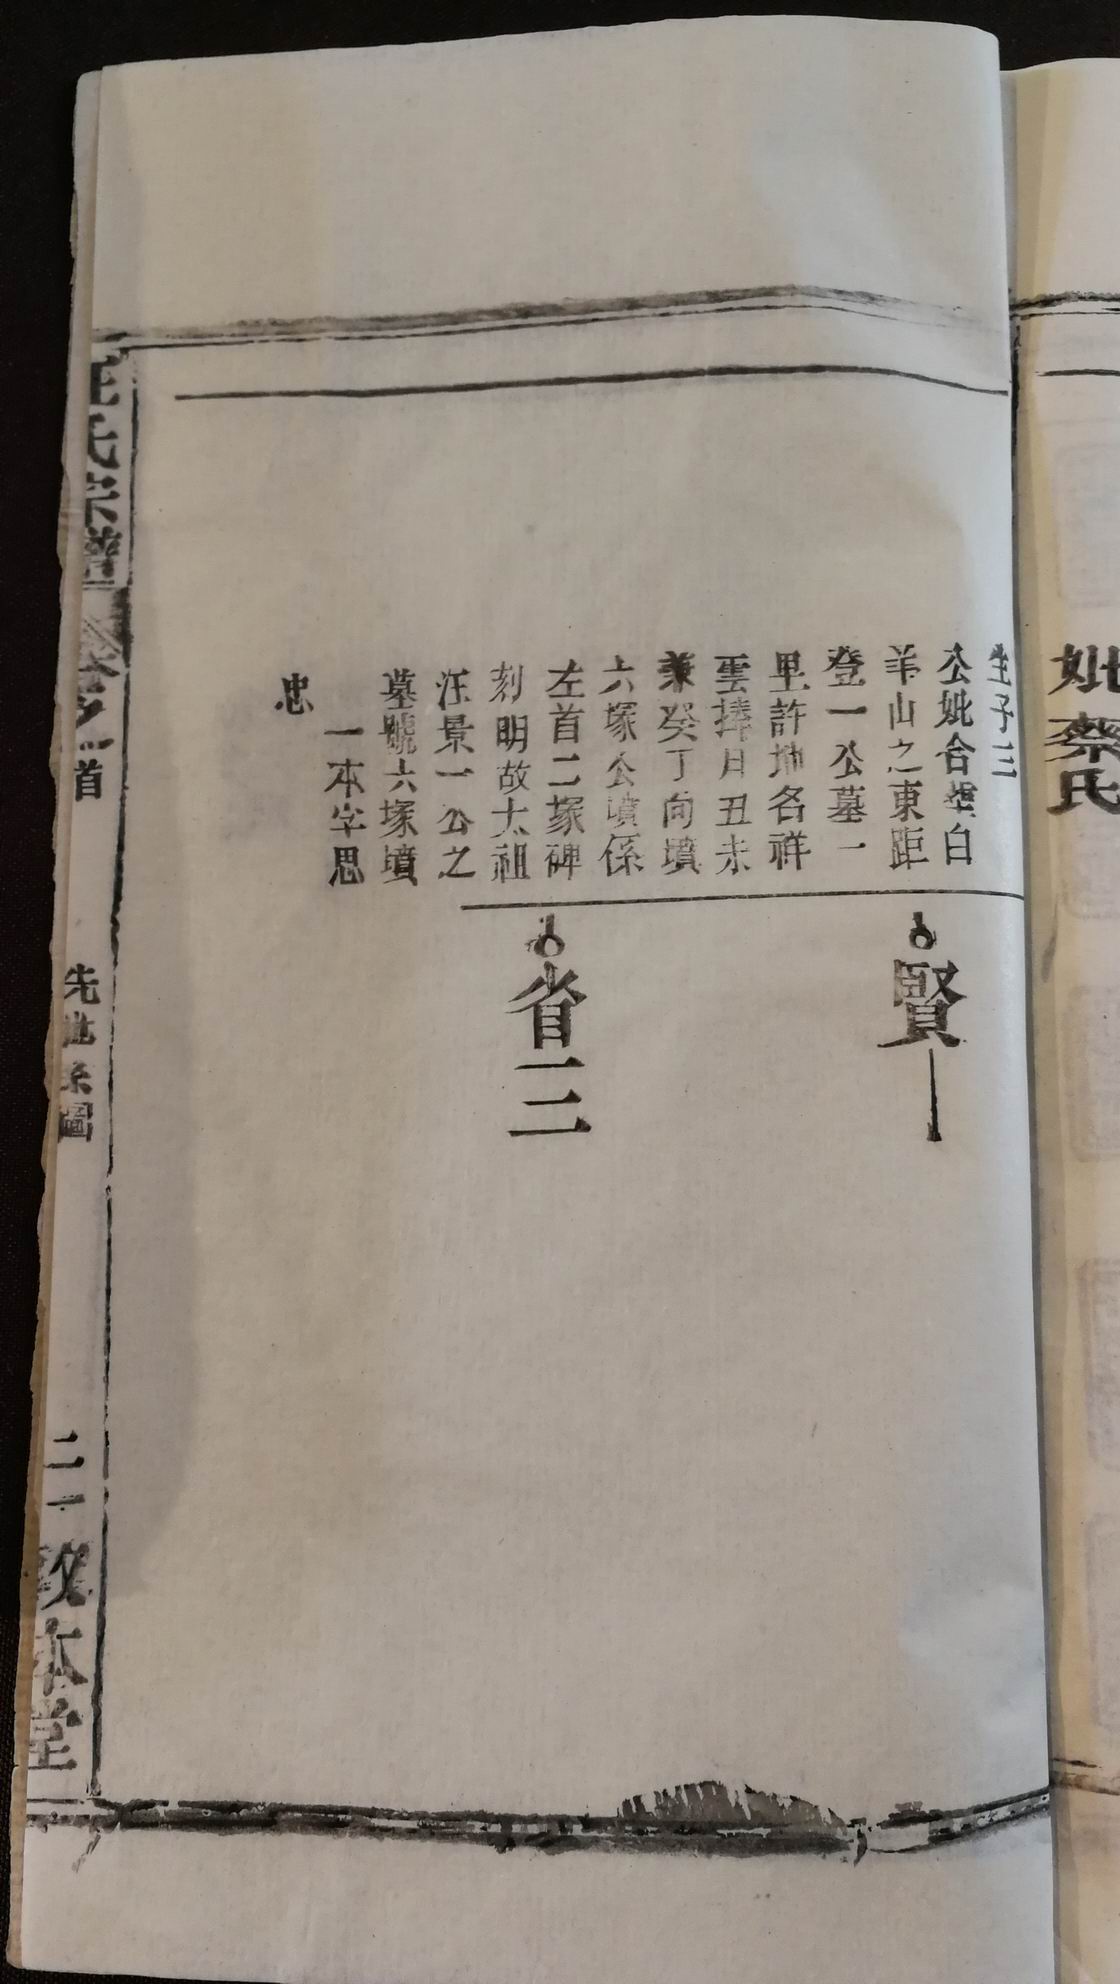 妣蔡氏
生子三
公妣合塟白
羊山之東距
登一公墓一
里許地名祥
雲捧日丑未
兼癸丁向墳
六塚公墳係
左首二塚碑
刻明故太祖
汪景一公之
墓號六塚墳
一本字思
忠
賢一
省三
汪氏宗譜
卷之一首
先世系圖
二一
敦本堂